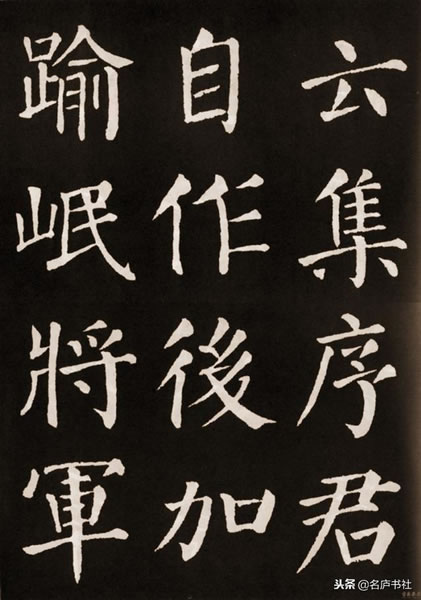 云集序君
自作後加
踰岷將軍
头条 @名庐书社